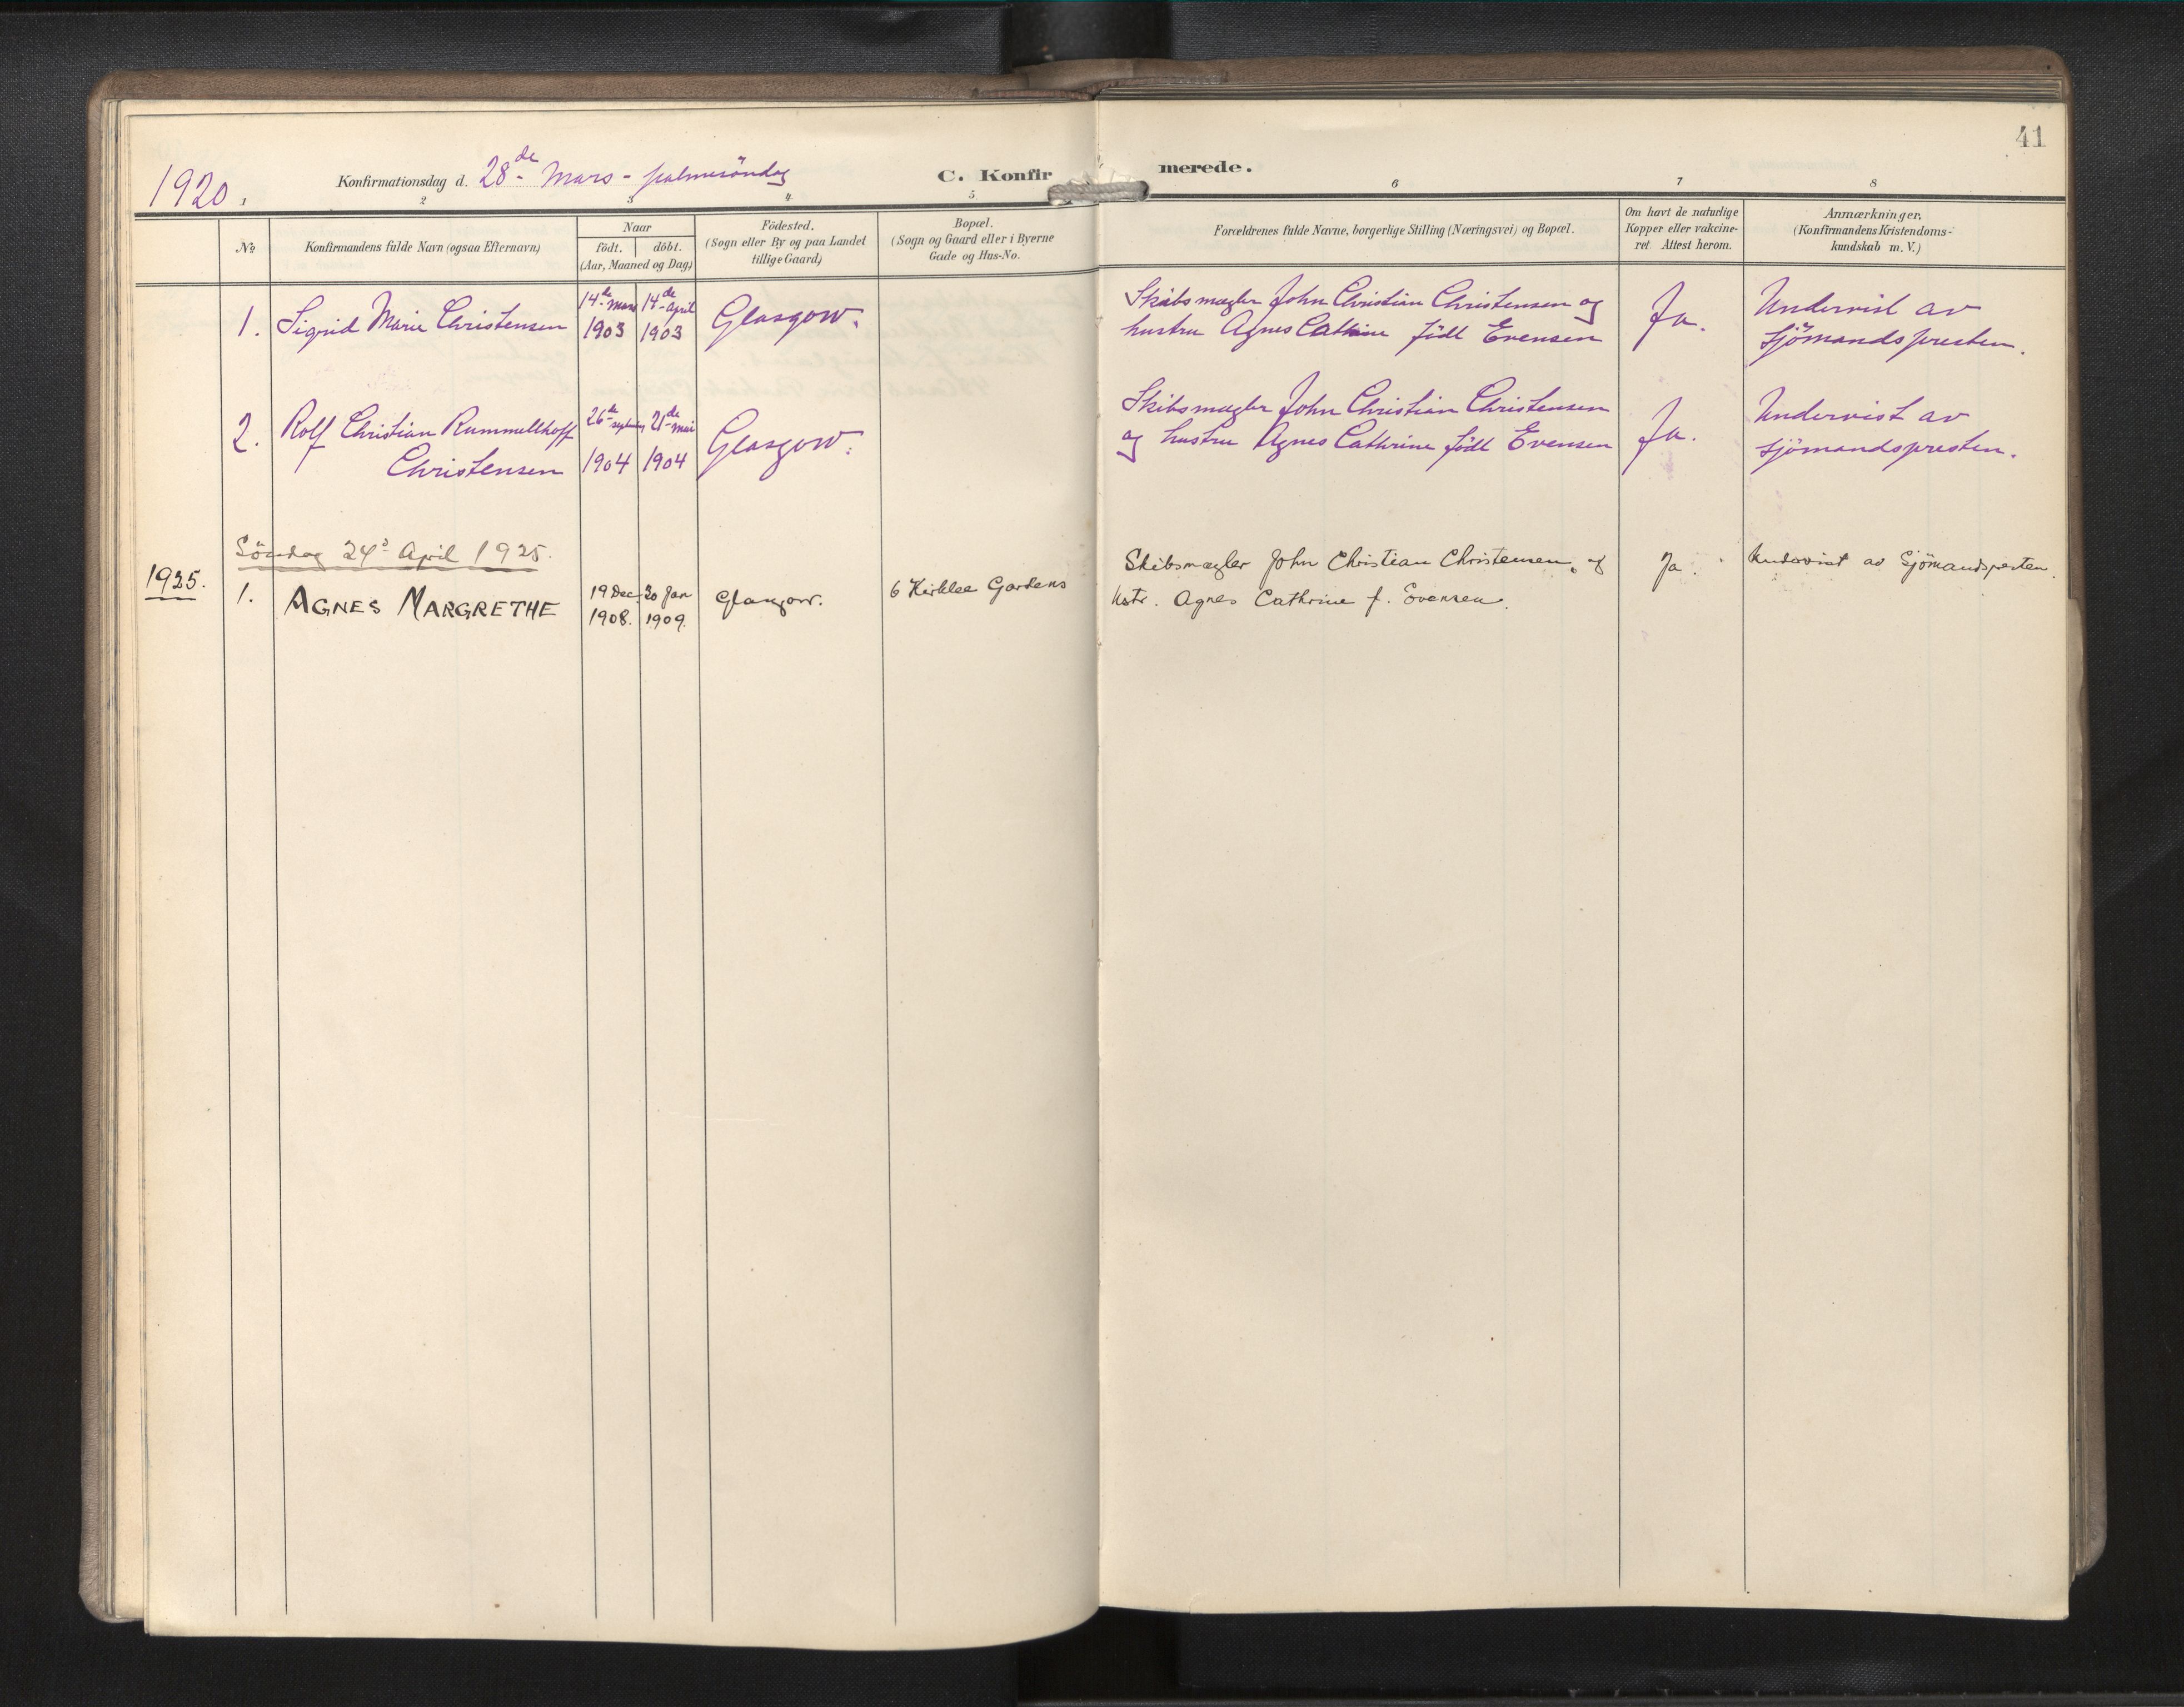 41
1920.
Konfirmationsdag d. 28de Mars - palmesöndag
C. Konfirmerede.
1 2 3 4 5 6 7 8
No
Konfirmandens fulde Navn (ogsaa Efternavn)
Naar
födt. döbt.
(Aar, Maaned og Dag)
Födested.
(Sogn eller By og paa Landet
tillige Gaard)
Bopæl.
(Sogn og Gaard eller i Byerne
Gade og Hus-No.
Forældrenes fulde Navne, borgerlige Stilling (Næringsvei) og Bopæl.
Om havt de naturlige
Kopper eller vakcine-
ret Attest herom.
Anmærkninger,
(Konfirmandens Kristendoms-
kundskab m. V.)
1. Sigrid Marie Christensen
14de Mars 1903
14de April 1903
Glasgow.
Skibsmægler John Christian Christensen og
hustru Agnes Cathrine född Evensen
Ja.
Undervist av
sjömandspresten.
2. Rolf Christian Rummelhoff
Christensen
26de septemb 1904
21de mai 1904
Glasgow.
Skibsmægler John Christian Christensen
og hustru Agnes Cathrine född Evensen
Ja.
Undervist av
sjömandspresten.
Söndag 24d April 1925.
1925.
1. AGNES MARGRETHE
19 Dec. 1908.
30 Jan 1909.
Glasgow.
6 Kirklee Gardens
Skibsmægler John Christian Christensen, og
Hstr. Agnes Cathrine f. Evensen.
Ja.
Undervist av Sjömandspresten.